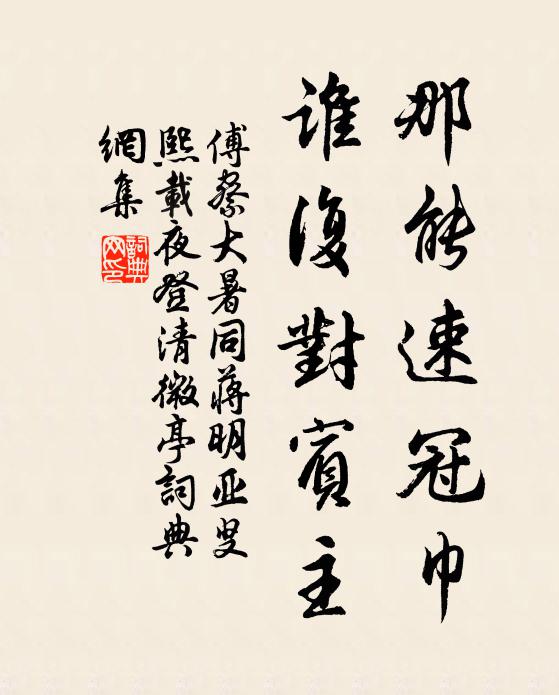 那能速冠巾
谁復對賓主
傅察大暑同蔣明亚叟
熙載夜登清微亭詞典
網集
詞典
网印